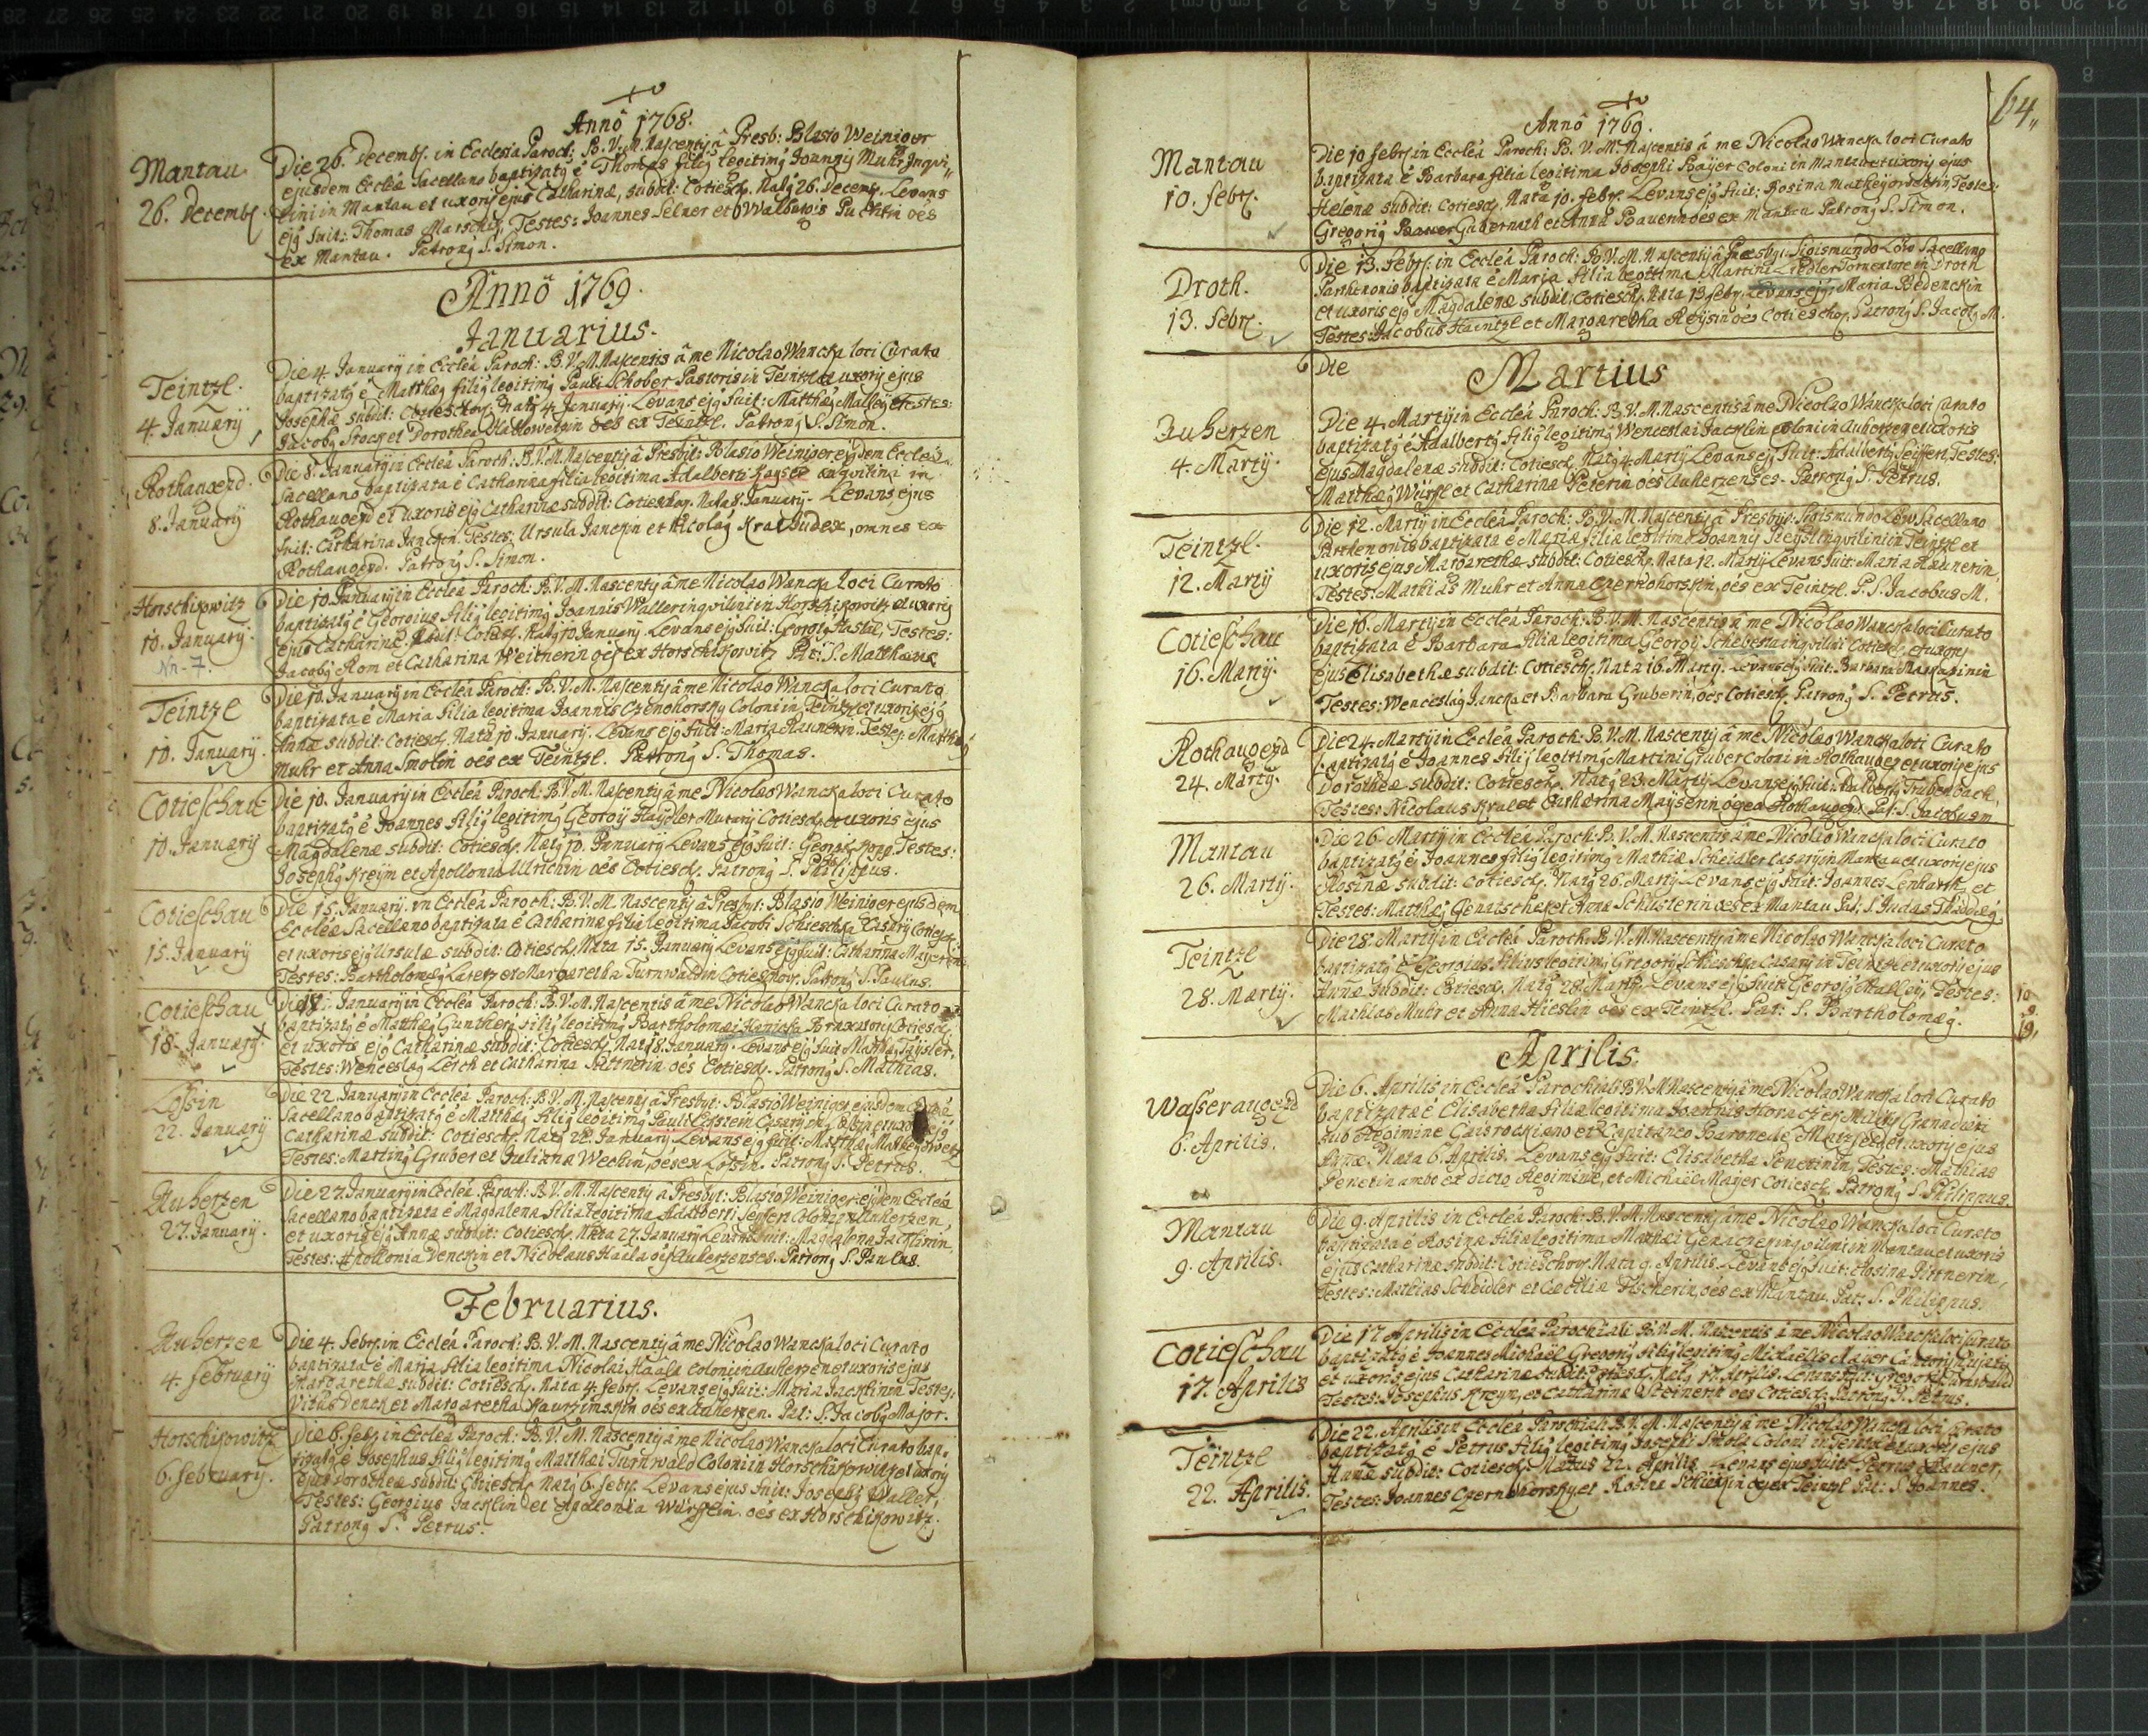 Anno 1768.
Mantau
26. Decemb.
Die 26. Decemb. in Ecclesia Paroch: B. V. M. Nascentis â Presb: Blasio Weiniger
ejusdem Eccleæ Sacellano baptizatg ê Thomas filig legitimg Joannis Muhr Inqvi„
lini in Mantau et uxoris ejus Catharinæ, subdit: Cotiesch. Natg 26. Decemb. Levans
ejg fuit: Thomas Marschik, Testes: Joannes Selner et Walburgis oes
ex Mantau. Patrong S. Simon.
Anno 1769.
Januarius.
Teintzl.
4. January
Die 4. January in Eccleâ Paroch: B. V. M. Nascentis â me Nicolao Wancka loci Curato
baptizatg ê Matthæg filig legitimg Pauli Schober Pastoris in Teintzl et uxoris ejus
Josephæ subdit: Cotieschov. Natg 4. January. Levans ejg fuit: Matthæg Malley Testes:
Jacobg Stock et Dorothea oes ex Teintzl. Patrong S. Simon.
Rothaugezd.
8. January
Die 8. January in Eccleâ Paroch: B. V. M. Nascentis â Presbit: Blasio Weiniger ejsdem Eccleæ
Sacellano baptizata ê Catharina filia legitima Adalberti inqvilini in
Rothaugezd et uxoris ejg Catharinæ subdit: Cotieschov. Nata 8. January. Levans ejus
fuit: Catharina Janckin. Testes: Ursula Janckin et Nicolag Kral Judex, omnes ex
Rothaugezd. Patrong S. Simon.
Horschikowitz
10. January.
Nr. 7.
Die 10. January in Eccleâ Paroch: B. V. M. Nascentis â me Nicolao Wancka loci Curato
baptizatg ê Georgius filig legitimg Joannis Waller inqvilini in Horschikowitz et uxoris
ejus Catharinæ. subdit: Cotiesch. Natg 10 January. Levans ejg fuit: Georgig Hastil, Testes:
Jacobg Rom et Catharina Weitnerin oes ex Horschikowitz Pat: S. Matthæus
Teintzl
10. January.
Die 10. January in Eccleâ Paroch: B. V. M. Nascentis â me Nicolao Wancka loci Curato
baptizata ê Maria filia legitima Joannis Czernohorsky Coloni in Teintzl et uxoris ejg
Annæ subdit: Cotiesch. Nata 10 January. Levans ejg fuit: Maria Raunerin. Testes: Mathias
Muhr et Anna Smolin oes ex Teintzl. Patrong S. Thomas.
Cotieschau
10. January
Die 10. January in Eccleâ Paroch: B. V. M. Nascentis â me Nicolao Wancka loci Curato
baptizatg ê Joannes filig legitimg Georgy Haydler Murarij Cotiesch. et uxoris ejus
Magdalenæ subdit: Cotiesch. Natg 10. January Levans ejg fuit: Testes:
Josephg Kreym et Apollonia Ulrichin oes Cotiesch. Patrong S. Philippus.
Cotieschau
15. January
Die 15. January. in Eccleâ Paroch: B. V. M. Nascentis â Presbyt: Blasio Weiniger ejusdem
Eccleæ Sacellano baptizata ê Catharina filia legitima Jacobi Schieschka Casarij Cotiesch.
et uxoris ejg Ursulæ subdit: Cotiesch. Nata 15. January Levans ejg fuit: Catharina Mayerin
Testes: Bartholomæg et Margaretha Turnwaldin Cotieschov. Patrong S. Paulus.
Cotieschau
18. January.
Die 18. January in Eccleâ Paroch: B. V. M. Nascentis â me Nicolao Wancka loci Curato
baptizatg ê Matthæg Guntherg filig legitimg Bartholomæi Braxatoris Cotiesch.
et uxoris ejg Catharinæ subdit: Cotiesch. Natg 18. January. Levans ejg fuit Matthæg
Testes: Wenceslag Lerch et Catharina oes Cotiesch. Patrong S. Mathias.
Lossin
22. January
Die 22 January in Eccleâ Paroch: B. V. M. Nascentis â Presbyt: Blasio Weiniger ejusdem Eccleæ
Sacellano baptizatg ê Matthæg filig legitimg Pauli
Catharinæ subdit: Cotiesch. Natg 22. January Levans ejg fuit: Matthæg
Testes: Marting Gruber et Juliana oes ex Losin. Patrong S. Petrus.
Auherzen
27. January.
Die 27. January in Eccleâ Paroch: B. V. M. Nascentis â Presbyt: Blasio Weiniger ejsdem Eccleæ
Sacellano baptizata ê Magdalena filia legitima Adalberti Seiffert Coloni ex Auherzen,
et uxoris ejg Annæ subdit: Cotiesch. Nata 27. January Levans fuit: Magdalena Jacklinin
Testes: Apollonia Venckin et Nicolaus Haala oes Auherzenses. Patrong S. Paulus.
Februarius.
Auherzen
4. February
Die 4. febr. in Eccleâ Paroch: B. V. M. Nascentis â me Nicolao Wancka loci Curato
baptizata ê Maria filia legitima Nicolai Haala coloni in Auherzen et uxoris ejus
Margarethæ subdit: Cotiesch. Nata 4. febr. Levans ejg fuit: Maria Jacklinin Testes:
Vitus Venck et Margaretha oes ex Auherzen. Pat: S. Jacobg Major.
Horschikowitz
6. february.
Die 6. febr. in Eccleâ Paroch: B. V. M. Nascentis â me Nicolao Wancka loci Curato bap„
tizatg ê Josephus filig legitimg Matthæi Turnwald Coloni in Horschikowitz et uxoris
ejus Dorotheæ subdit: Cotiesch. Natg 6. febr. Levans ejus fuit: Josephg Waller,
Testes: Georgius Jacklin et Apollonia oes ex Horschikowitz.
Patrong S. Petrus.
64„
Anno 1769.
Mantau
10. febr.
Die 10 febr. in Eccleâ Paroch: B. V. M. Nascentis â me Nicolao Wancka loci Curato
baptizata ê Barbara filia legitima Josephi Bayer Coloni in Mantau et uxoris ejus
Helenæ subdit: Cotiesch. Nata 10. febr. Levans ejg fuit: Rosina Testes:
Gregorig Gubernath et Anna oes ex Mantau Patrong S. Simon.
Droth.
13. febr.
Die 13. febr. in Eccleâ Paroch: B. V. M. Nascentis â Presbyt: Sigismundo Löw Sacellano
Parthenonis baptizata ê Maria filia legitima Martini in Droth
et uxoris ejg Magdalenæ subdit: Cotiesch. Nata 13 febr. Levans ejg: Maria Bedenckin
Testes: Jacobus Haintzl et Margaretha oes Cotieschov. Patrong S. Jacobg M.
Die
Martius
Auherzen
4. Marty.
Die 4. Marty in Eccleâ Paroch: B. V. M. Nascentis â me Nicolao Wancka loci Curato
baptizatg ê Adalbertg filig legitimg Wenceslai Jacklin coloni in Auherzen et uxoris
ejus Magdalenæ subdit: Cotiesch. Natg 4. Marty Levans ejg fuit: Adalbertg Seiffert, Testes:
Matthæg Würfl et Catharina Peterin oes Auherzenses. Patrong S. Petrus.
Teintzl.
12. Marty
Die 12. Marty in Eccleâ Paroch: B. V. M. Nascentis â Presbyt: Sigismundo Löw Sacellano
Parthenonis baptizata ê Maria filia legitima Joannis inqvilini in Teintzl et
uxoris ejus Margarethæ subdit: Cotiesch. Nata 12. Marty Levans fuit: Maria Raunerin,
Testes: Mathias Muhr et Anna Czernohorskin, oes ex Teintzl. P. S. Jacobus M.
Cotieschau
16. Marty.
Die 16. Marty in Eccleâ Paroch: B. V. M. Nascentis â me Nicolao Wancka loci Curato
baptizata ê Barbara filia legitima Georgy inqvilini Cotiesch. et uxoris
ejus Elisabethæ subdit: Cotiesch. Nata 16. Marty. Levans ejg fuit: Barbara
Testes: Wenceslag Jancka et Barbara Gruberin, oes Cotiesch. Patrong S. Petrus.
Rothaugezd
24. Marty.
Die 24. Marty in Eccleâ Paroch: B. V. M. Nascentis â me Nicolao Wancka loci Curato
baptizatg ê Joannes filig legitimg Martini Gruber Coloni in Rothaugez et uxoris ejus
Dorotheæ subdit: Cotiesch. Natg 23. Marty. Levans ejg fuit:
Testes: Nicolaus Kral et Catharina oes ex Rothaugezd. Pat: S. Jacobus m
Mantau
26. Marty.
Die 26. Marty in Eccleâ Paroch: B. V. M. Nascentis â me Nicolao Wancka loci Curato
baptizatg ê Joannes filig legitimg Mathiæ Scheidler Casarij in Mantau et uxoris ejus
Rosinæ subdit: Cotiesch. Natg 26. Marty Levans ejg fuit: Joannes Lenharth, et
Testes: Matthæg et Anna Schusterin oes ex Mantau Pat: S. Judas Thaddæg.
Teintzl
28. Marty.
Die 28. Marty in Eccleâ Paroch: B. V. M. Nascentis â me Nicolao Wancka loci Curato
baptizatg ê Georgius filius legitimg Gregory Schieschka Casarij in Teintzl et uxoris ejus
Annæ subdit: Cotiesch. Natg 28. Marty. Levans ejg fuit: Georgig Malley, Testes:
Mathias Muhr et Anna oes ex Teintzl. Pat: S. Bartholomæg.
Aprilis.
Wasseraugezd
6. Aprilis.
Die 6. Aprilis in Eccleâ Parochiali B. V. M. Nascentis â me Nicolao Wancka loci Curato
baptizata ê Elisabetha filia legitima Joannis Horaczek Militis Granadieri
sub Regimine et Capitaneo Barone de et uxoris ejus
Annæ. Nata 6. Aprilis. Levans ejg fuit: Elisabetha Testes: Mathias
ambo ex dicto Regimine, et Michael Mayer Cotiesch. Patrong S. Philippus.
Mantau
9. Aprilis.
Die 9. Aprilis in Eccleâ Paroch: B. V. M. Nascentis â me Nicolao Wancka loci Curato
baptizata ê Rosina filia legitima Matthæi inqvilini in Mantau et uxoris
ejus Catharinæ subdit: Cotieschov. Nata 9. Aprilis. Levans ejg fuit: Rosina Bittnerin,
Testes: Mathias Scheidler et Cæcilia Fischerin, oes ex Mantau. Pat: S. Philippus.
Cotieschau
17. Aprilis
Die 17 Aprilis in Eccleâ Parochiali B. V. M. Nascentis â me Nicolao Wancka loci Curato
baptizatg ê Joannes Michaël Gregorig filig legitimg Michaëlis Mayer
et uxoris ejus Catharinæ subdit: Cotiesch. Natg 17. Aprilis. Levans fuit: Gregorig Turnwald
Testes: Josephus Kreym, et Catharina oes Cotiesch. Patrong S. Petrus.
Teintzl
22. Aprilis.
Die 22. Aprilis in Eccleâ Parochiali B. V. M. Nascentis â me Nicolao Wancka loci Curato
baptizatg ê Petrus filig legitimg Josephi Smola Coloni in Teintzl et uxoris ejus
Annæ subdit: Cotiesch. Natus 22. Aprilis. Levans ejus fuit: Petrus Rauner,
Testes: Joannes Czernohorsky et Rosina oes ex Teintzl Pat: S. Joannes.